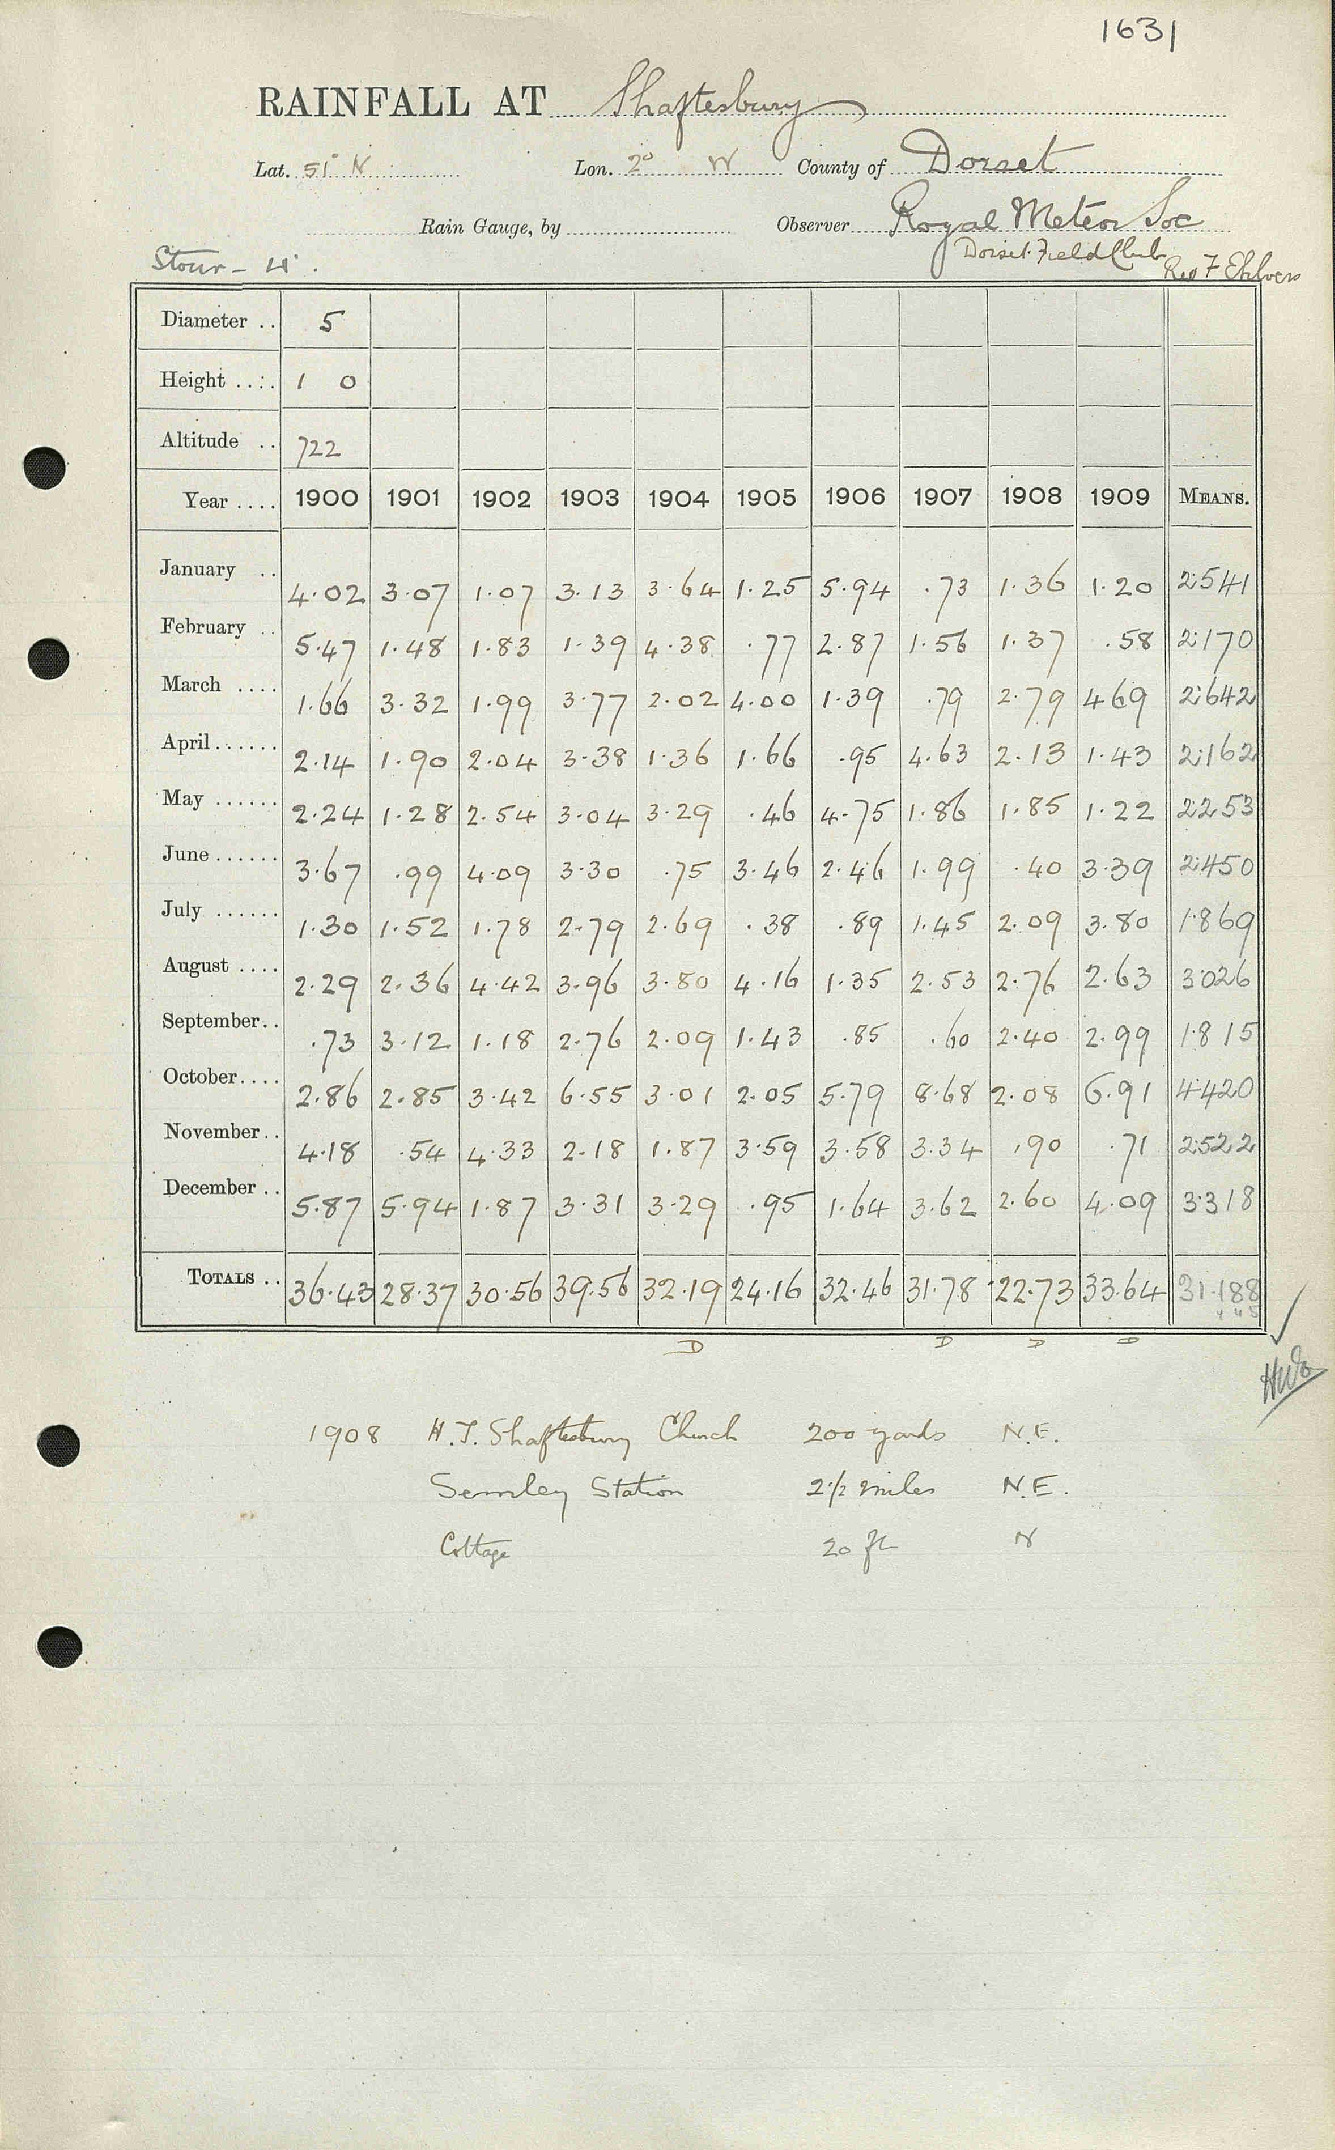 1631
RAINFALL AT Shaftesbury
Lat. 51° N Lon. 2° W County of Dorset
Rain Gauge, by Observer Royal Meteor Soc
Dorset Field Club
Stour - 4. Rev F
Diameter .. 5
Height .... 1 0
Altitude .. 722
Year .... 1900 1901 1902 1903 1904 1905 1906 1907 1908 1909 MEANS.
January .. 4.02 3.07 1.07 3.13 3.64 1.25 5.94 .73 1.36 1.20 2.541
February .. 5.47 1.48 1.83 1.39 4.38 .77 2.87 1.56 1.37 .58 2.170
March .... 1.66 3.32 1.99 3.77 2.02 4.00 1.39 .79 2.79 4.69 2.642
April...... 2.14 1.90 2.04 3.38 1.36 1.66 .95 4.63 2.13 1.43 2.162
May ...... 2.24 1.28 2.54 3.04 3.29 .46 4.75 1.86 1.85 1.22 2253
June...... 3.67 .99 4.09 3.30 .75 3.46 2.46 1.99 .40 3.39 2.450
July ...... 1.30 1.52 1.78 2.79 2.69 .38 .89 1.45 2.09 3.80 1.869
August .... 2.29 2.36 4.42 3.96 3.80 4.16 1.35 2.53 2.76 2.63 3.026
September.. .73 3.12 1.18 2.76 2.09 1.43 .85 .60 2.40 2.99 1.815
October.... 2.86 2.85 3.42 6.55 3.01 2.05 5.79 8.68 2.08 6.91 4.420
November.. 4.18 .54 4.33 2.18 1.87 3.59 3.58 3.34 .90 .71 2522
December .. 5.87 5.94 1.87 3.31 3.29 .95 1.64 3.62 2.60 4.09 3.318
TOTALS .. 36.43 28.37 30.56 39.56 32.19 24.16 32.46 31.78 22.73 33.64 31.188
D D D D
1908 H.T. Shaftesbury Church 200 yards N.E.
Semley Station 2 1/2 miles N.E.
Cottage 20 ft N